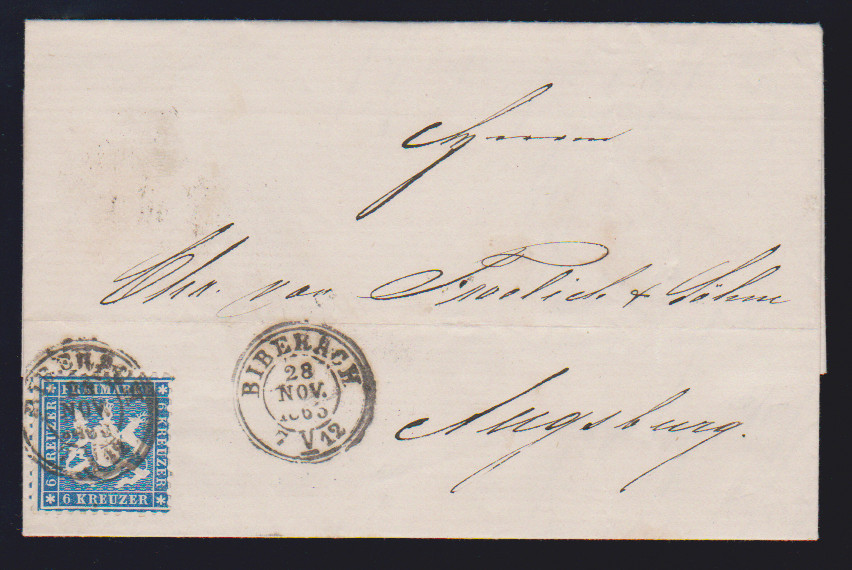 Herrn
Chr. von Froelich & Söhne
Augsburg.
BIBERACH
28
NOV.
1863
7 V 12
BIBERACH
NOV.
FR. MARKE
6 KREUZER
6 KREUZER
6 KREUZER